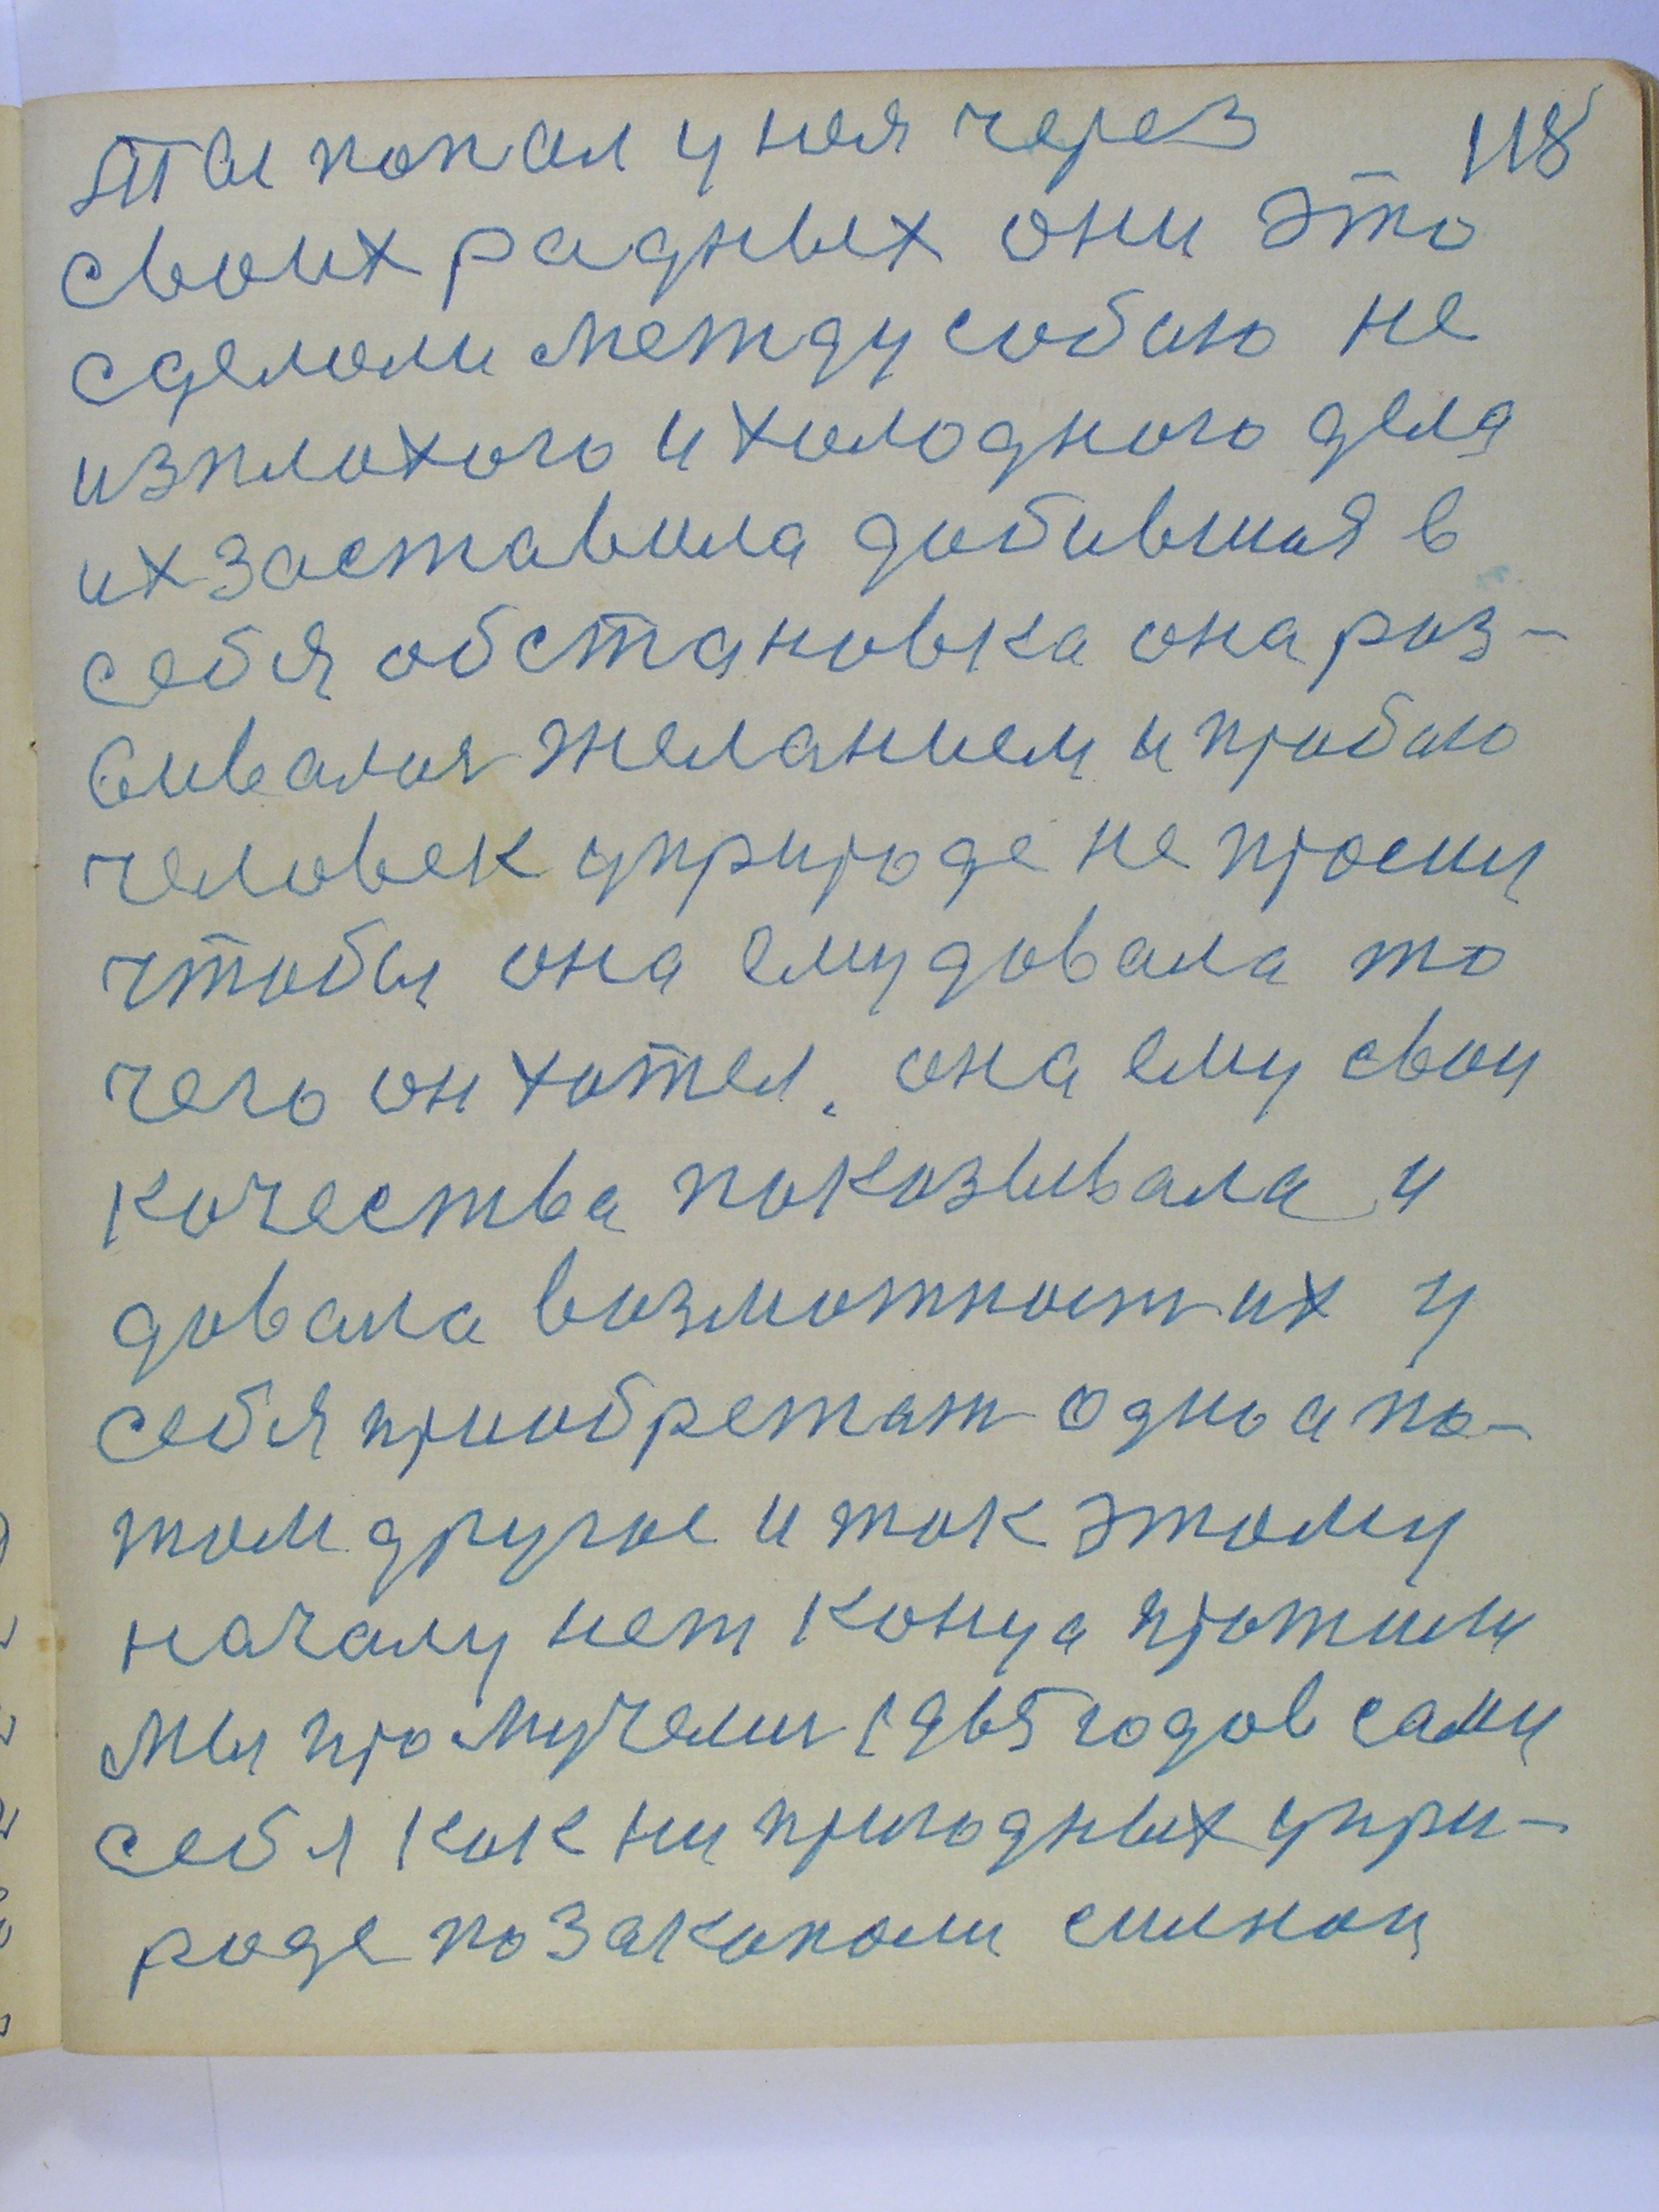 118
Ты попал у нея через
своих радных они это
сделоли между собою не
изплохого и холодного дела
их заставила добившия в
себя обстановка она роз-
вивалия желанием и пробою
человек уприроде не просиу
чтобы она ему довала то
чего он хотел. она ему свои
кочества покозывала и
довала возможност их у
себя приобретат одно а по-
том другое и ток этому
началу нет конца прожили
мы промучелис 1965 годов сами
себя как ни пригодных упри-
роде позакополи силнои